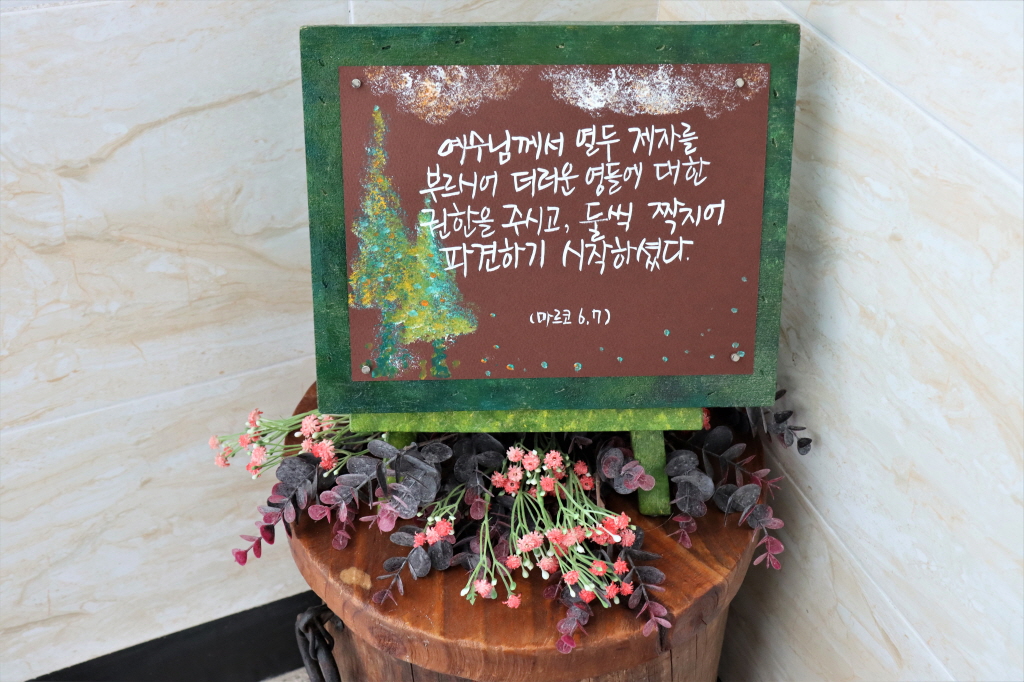 예수님께서 열두 제자를
부르시어 더러운 영들에 대한
권한을 주시고, 둘씩 짝지어
파견하기 시작하셨다.
(마르코 6,7)